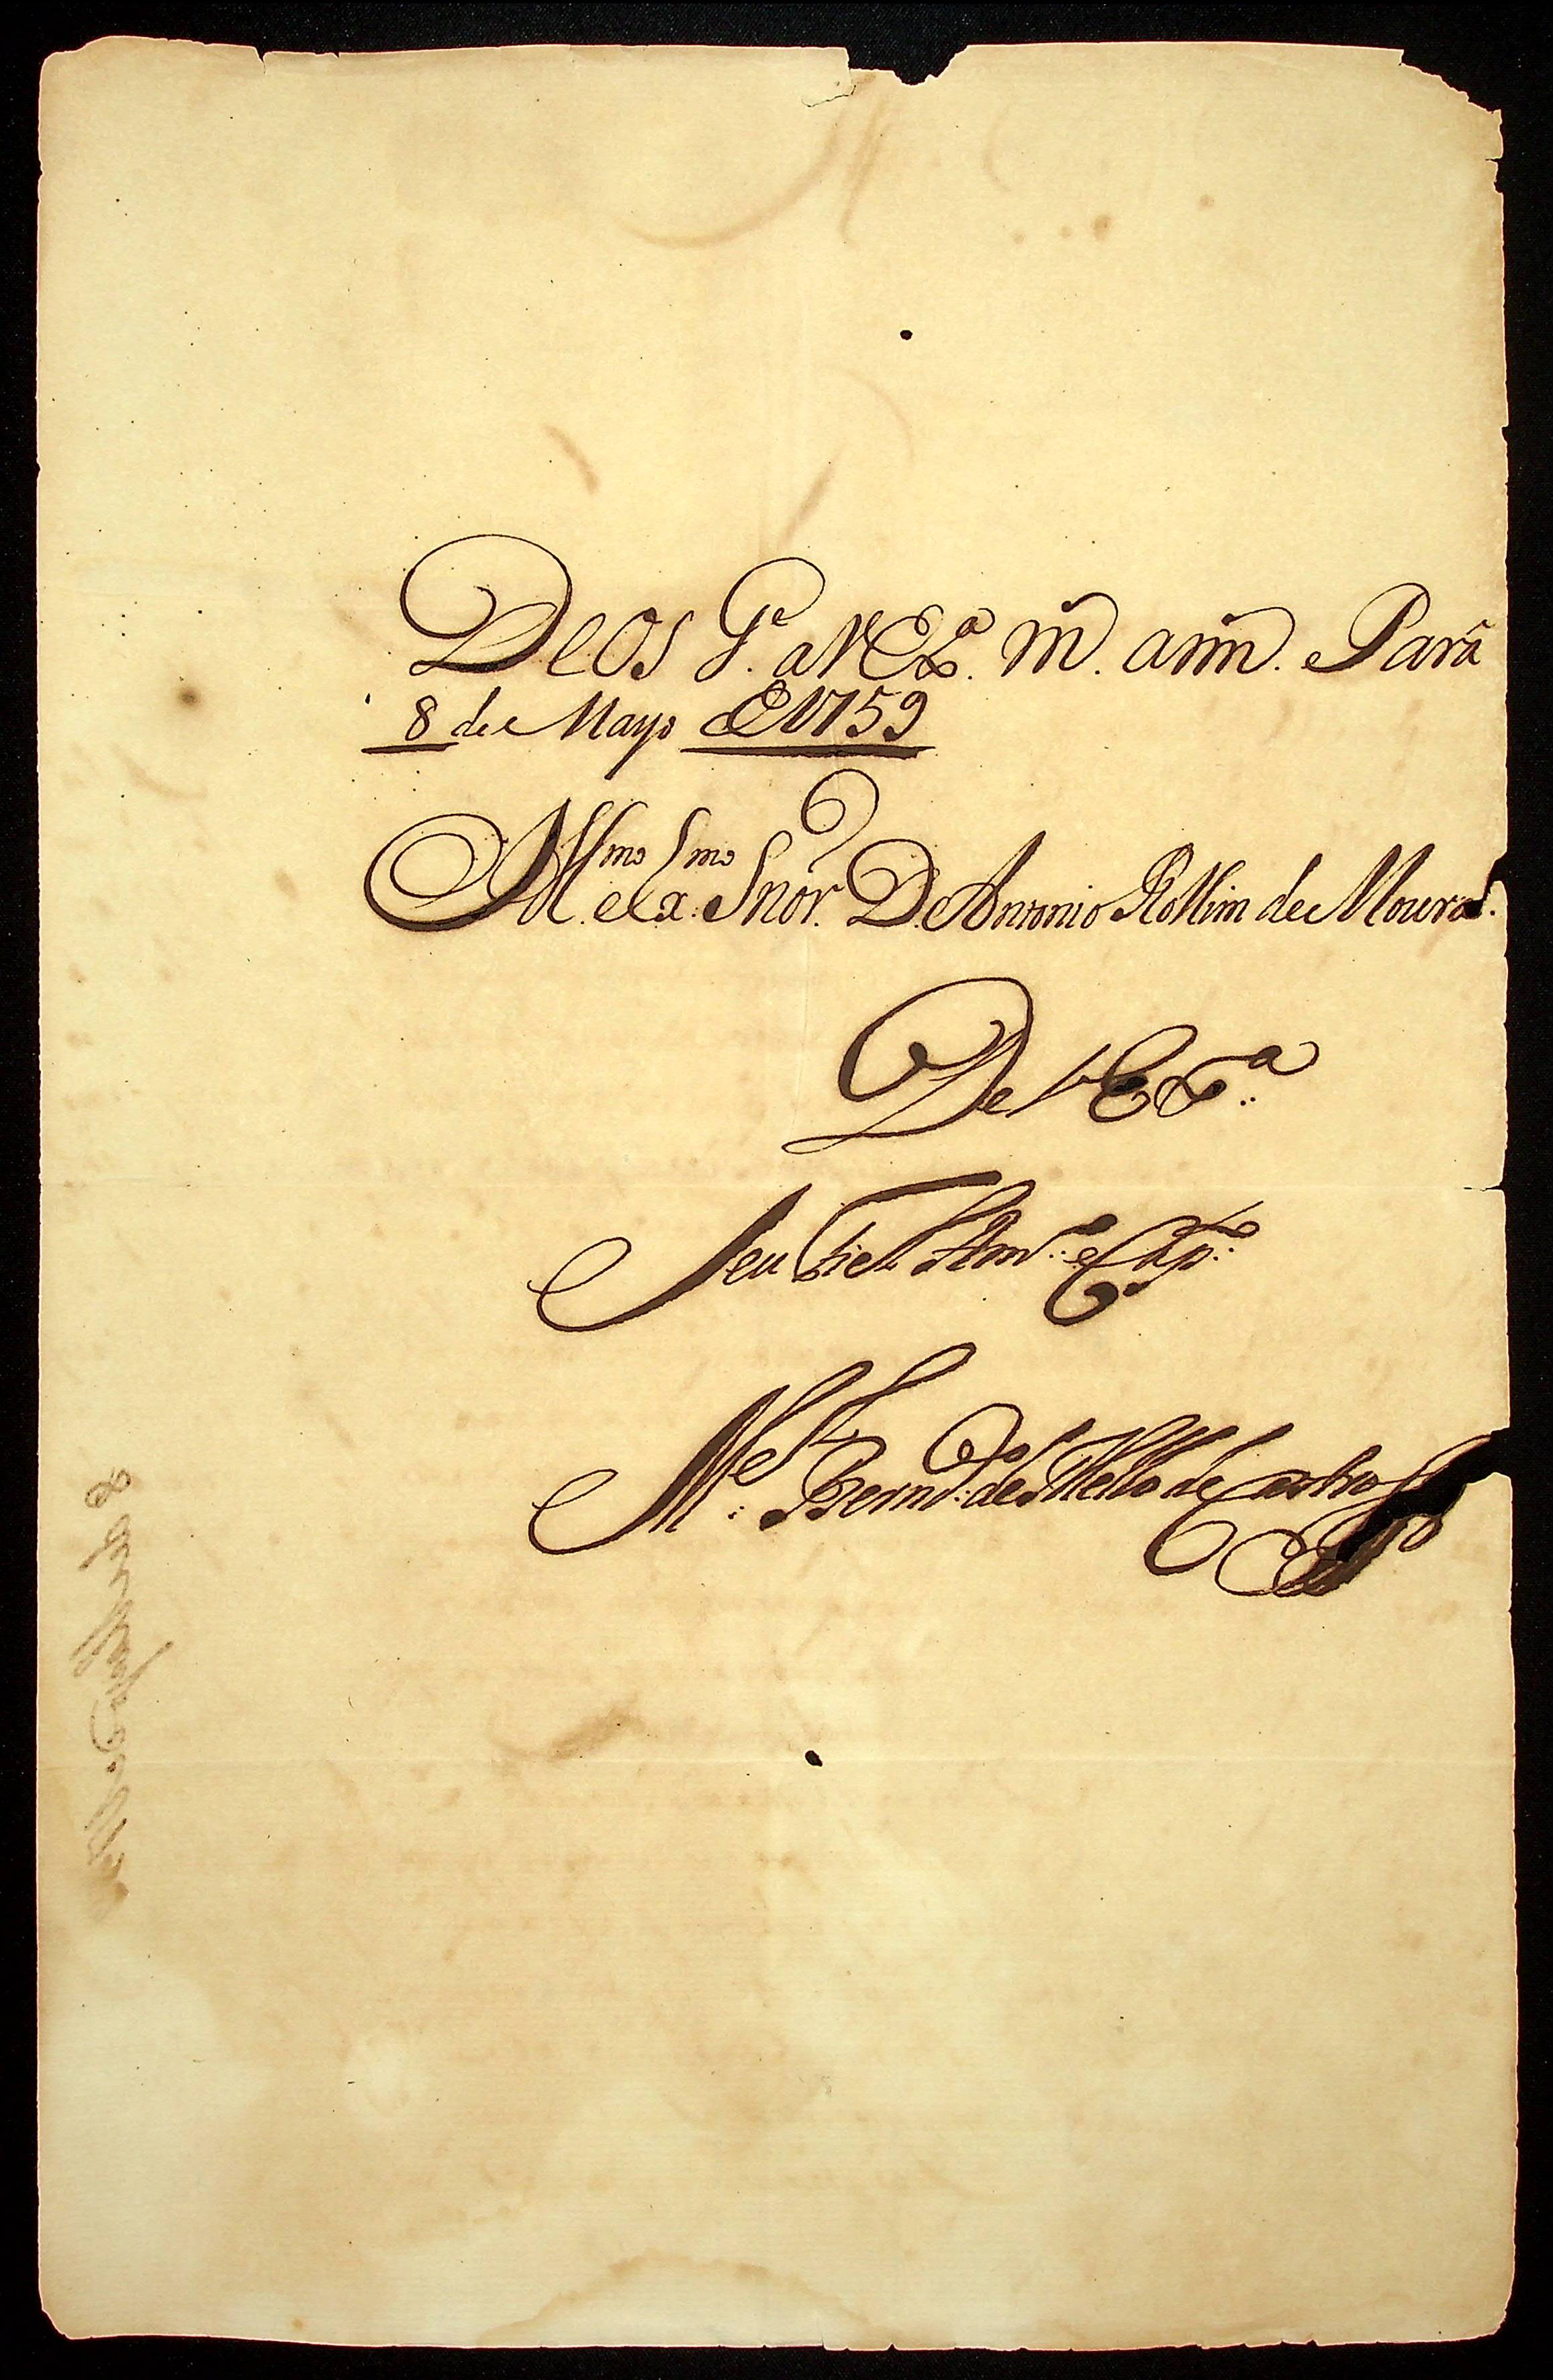 Deos G.e a V Ex.a m. ann. Parâ
8 de Mayo de 1759
Ill.mo e Ex.mo Snõr. D. Antonio Rollim de Moura.
De V Ex.a
Seu Fiel Am.o e Cap.
M.el Bern.do de Mello de Castro